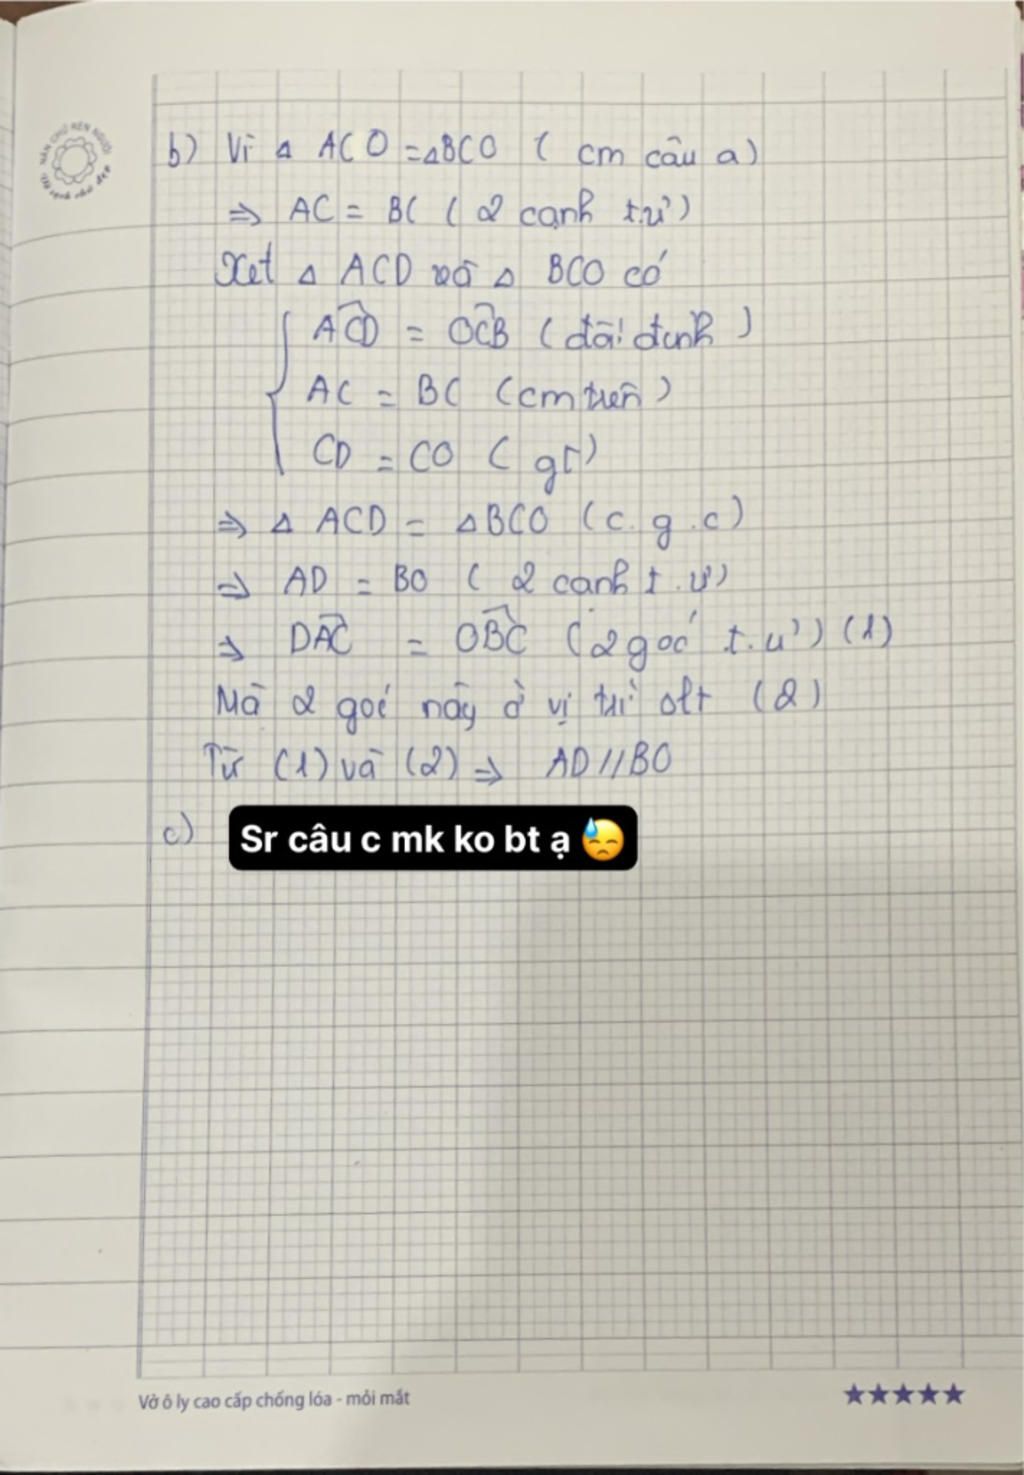 b) Vì Δ ACO = ΔBCO ( cm câu a)
⇒ AC = BC ( 2 cạnh t.ư)
Xét Δ ACD và Δ BCO có
ACD = OCB (đối đỉnh )
AC = BC (cm trên )
CD = CO ( gt)
⇒ Δ ACD = ΔBCO (c.g.c)
⇒ AD = BO ( 2 cạnh t.ư)
⇒ DAC = OBC (2 góc t.ư) (1)
Mà 2 góc này ở vị trí slt (2)
Từ (1) và (2) ⇒ AD//BO
c) Sr câu c mk ko bt ạ 😓
Vở ô ly cao cấp chống lóa - mỏi mắt
★★★★★